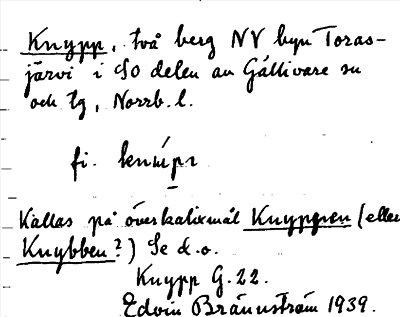 Knypp, två berg NV byn Toras-
järvi i SO delen av Gällivare sn
och tg, Norrb. l.
fi.
Kallas på överkalixmål Knyppen (eller
Knybben?) Se d.o.
Knypp G.22.
Edvin Brännström 1939.